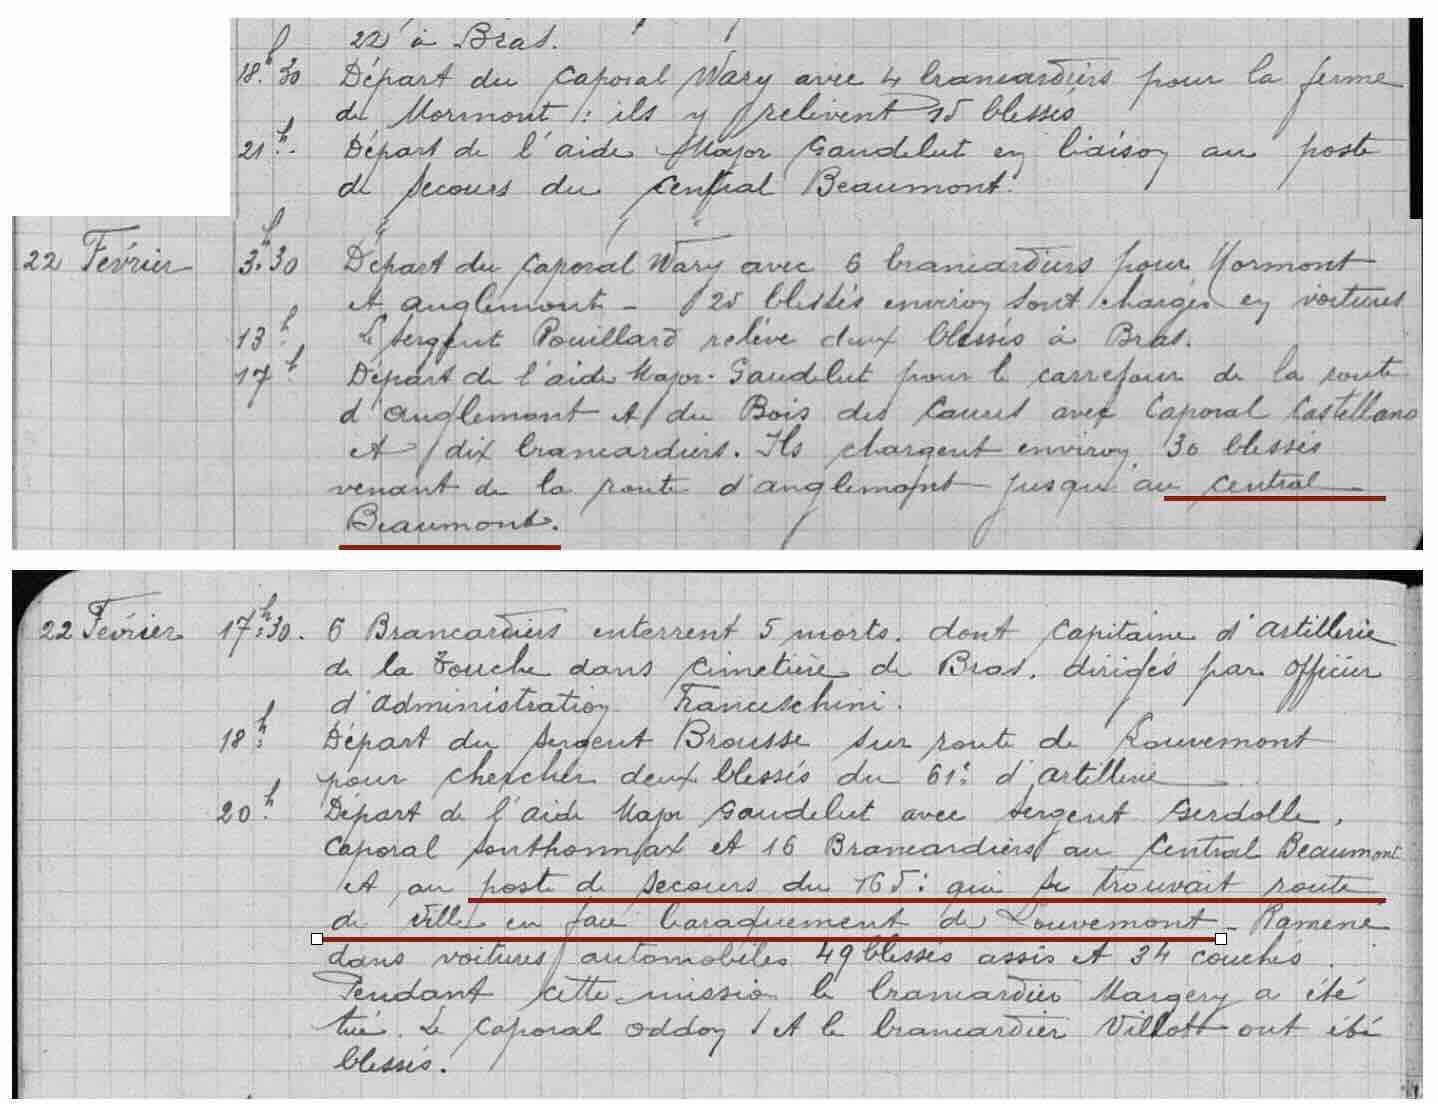 22 à Bras.
18h30 Départ du Caporal Wary avec 4 brancardiers pour la ferme
de Mormont : ils y relèvent 15 blessés
21h. Départ de l'aide Major Gaudelut en liaison au poste
de secours du Central Beaumont.
22 Février 3h30 Départ du Caporal Wary avec 6 brancardiers pour Mormont
et anglemont - 25 blessés environ sont chargés en voitures
13h Le sergent Pouillard relève deux blessés à Bras.
17h Départ de l'aide Major Gaudelut pour le carrefour de la route
d'anglemont et du Bois des Caures avec Caporal Castellano
et dix brancardiers. Ils chargent environ 30 blessés
venant de la route d'anglemont jusqu'au central
Beaumont.
22 Février 17h:30. 6 Brancardiers enterrent 5 morts. dont Capitaine d'Artillerie
de la Touche dans cimetière de Bras. dirigés par officier
d'administration Franceschini.
18h: Départ du sergent Brousse sur route de Louvemont
pour chercher deux blessés du 61e d'artillerie
20h: Départ de l'aide Major Gaudelut avec sergent Gerdolle,
Caporal Southonnax et 16 Brancardiers au Central Beaumont
et au poste de secours du 165e qui se trouvait route
de ville en face baraquement de Louvemont - Ramené
dans voitures automobiles 49 blessés assis et 34 couchés.
Pendant cette mission le brancardier Margery a été
tué. Le Caporal Oddoy et le brancardier Villott ont été
blessés.